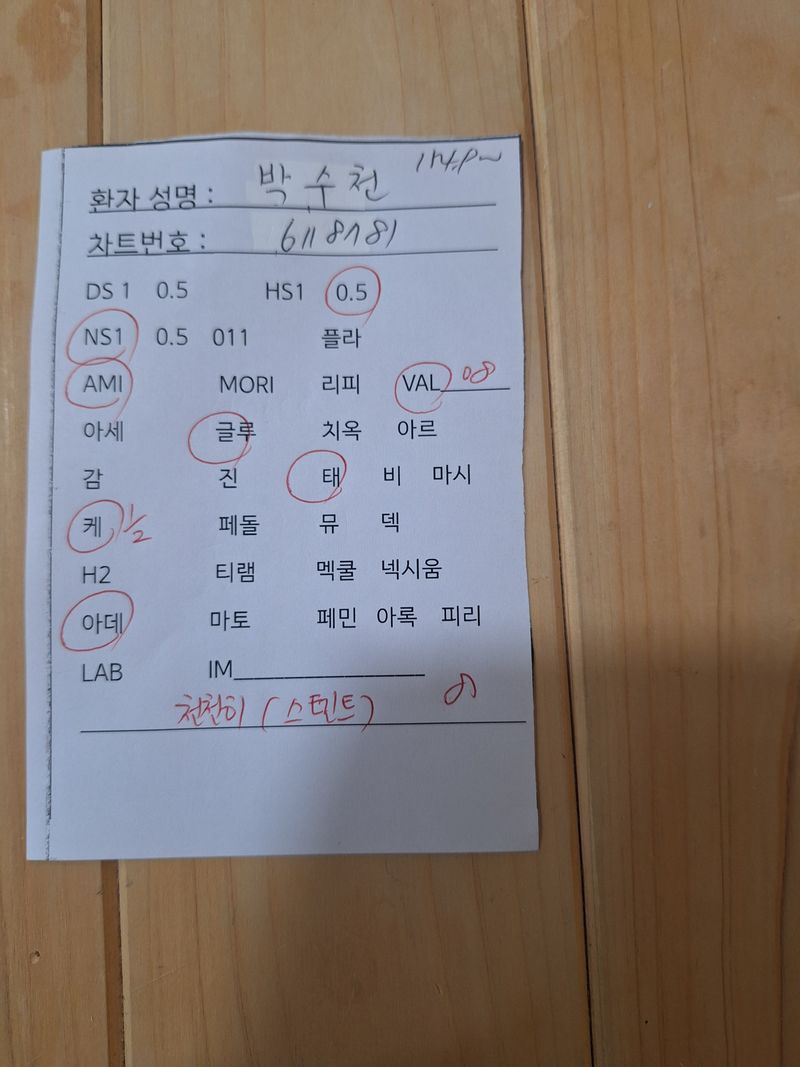 환자 성명 : 박수천
차트번호 : 6118181
DS 1 0.5 HS1 0.5
NS1 0.5 011 플라
AMI MORI 리피 VAL
아세 글루 치옥 아르
감 진 태 비 마시
케 1/2 페돌 뮤 덱
H2 티램 멕쿨 넥시움
아데 마토 페민 아록 피리
LAB IM
천천히 (스텐트)